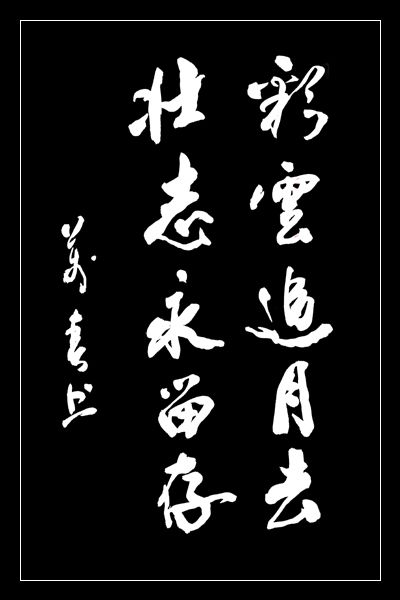 彩雲追月去
壯志永留存